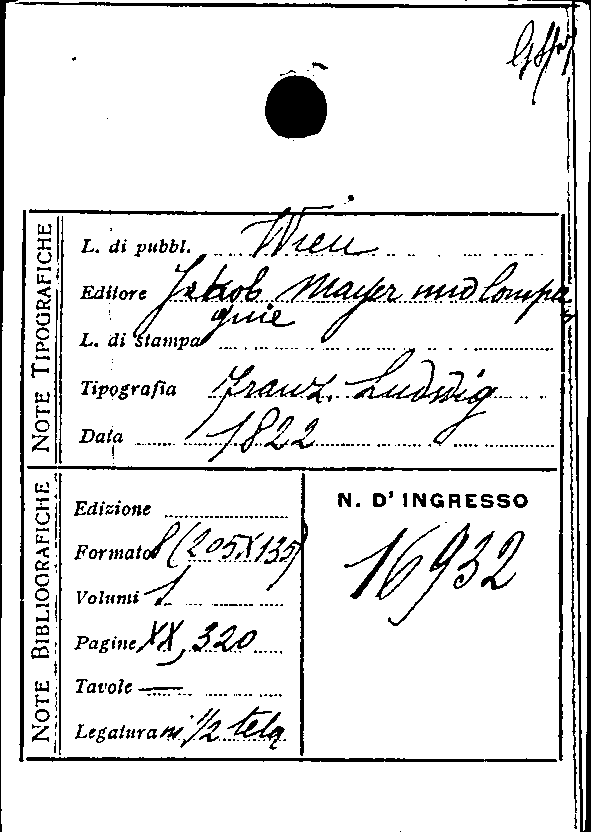 NOTE TIPOGRAFICHE
L. di pubbl. Wien
Editore Jakob Mayer und Compa
gnie
L. di stampa
Tipografia Franz Ludwig
Data 1822
NOTE BIBLIOGRAFICHE
Edizione
Formato 8 (205X135)
Volumi 1
Pagine XX, 320
Tavole —
Legatura in 1/2 tela
N. D' INGRESSO
16932